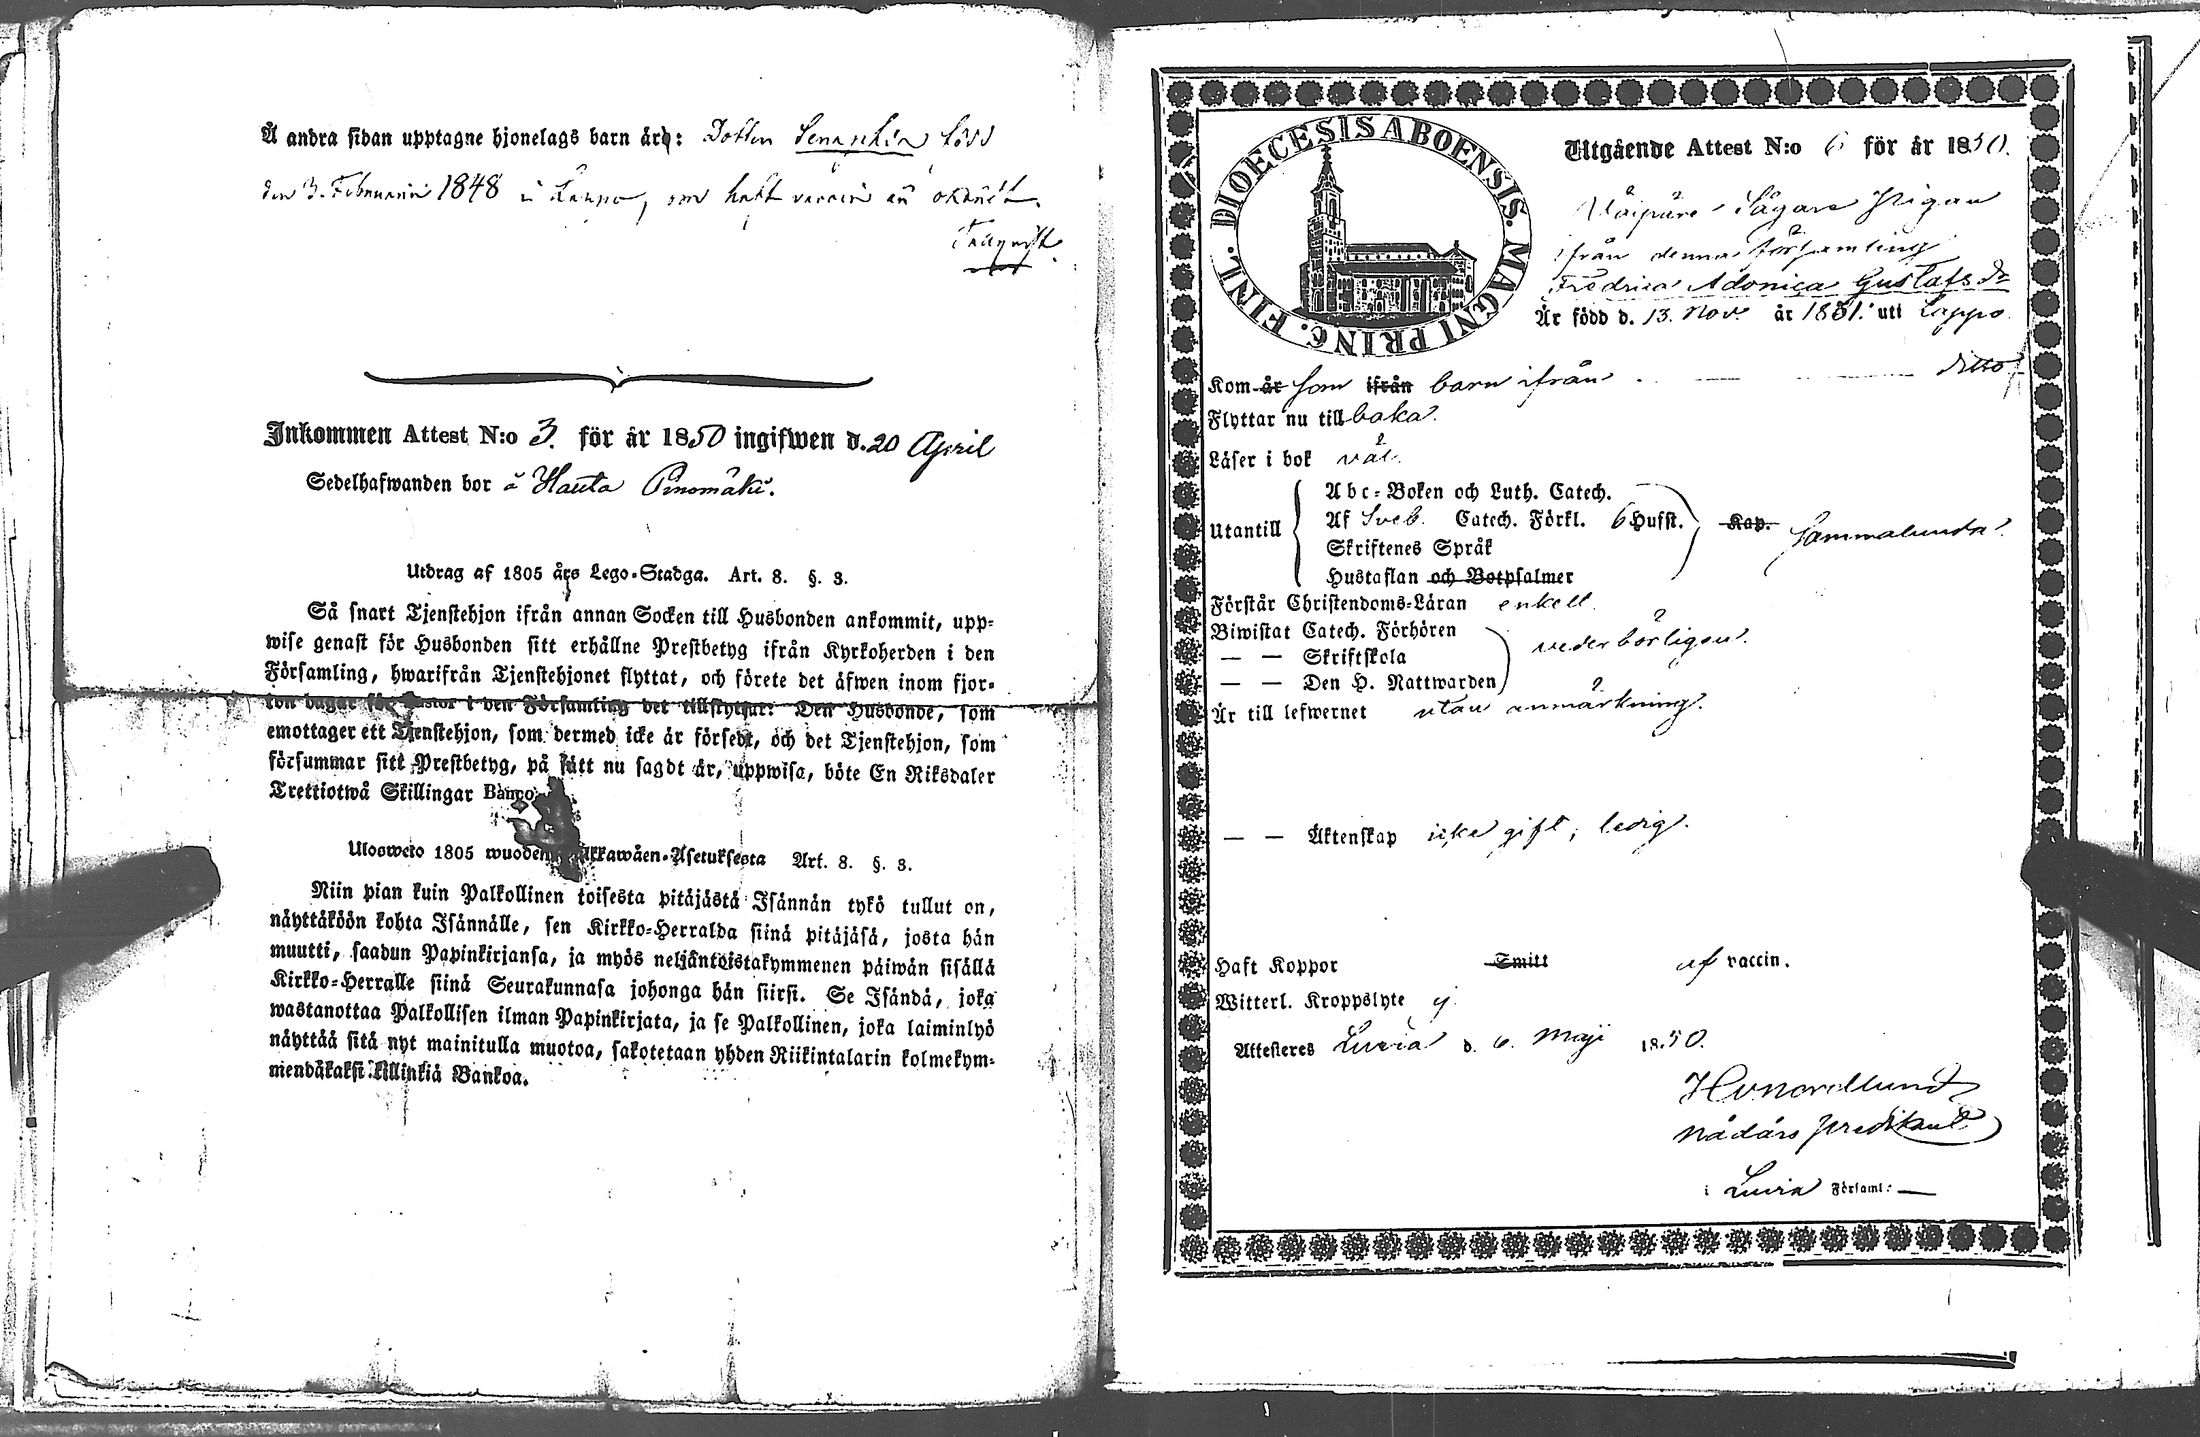 Å andra sidan upptagne hjonelags barn äro: Dottren född
den 3. Februarii 1848 i som haft vaccin
Inkommen Attest N:o 3. för år 1850 ingifwen d. 20 April
Sedelhafwanden bor å Hauta Pinomäki.
Utdrag af 1805 års Lego-Stadga. Art. 8. §. 3.
Så snart Tjenstehjon ifrån annan Socken till Husbonden ankommit, upp-
wise genast för Husbonden sitt erhållne Prestbetyg ifrån Kyrkoherden i den
Församling, hwarifrån Tjenstehjonet flyttat, och förete det äfwen inom fjor-
ton dagar för Pastor i den Församling det tillflyttat: Den Husbonde, som
emottager ett Tjenstehjon, som dermed icke är försedt, och det Tjenstehjon, som
försummar sitt Prestbetyg, på sätt nu sagdt är, uppwisa, böte En Riksdaler
Trettiotwå Skillingar Banco.
Ulosweto 1805 wuoden Palkkawäen-Asetuksesta Art. 8. §. 3.
Niin pian kuin Palkollinen toisesta pitäjästä Isännän tykö tullut on,
näyttäköön kohta Isännälle, sen Kirkko-Herralda siinä pitäjäsä, josta hän
muutti, saadun Papinkirjansa, ja myös neljäntoistakymmenen päiwän sisällä
Kirkko-Herralle siinä Seurakunnasa johonga hän siirsi. Se Isändä, joka
wastanottaa Palkollisen ilman Papinkirjata, ja se Palkollinen, joka laiminlyö
näyttää sitä nyt mainitulla muotoa, sakotetaan yhden Riikintalarin kolmekym-
mendäkaksi killinkiä Bankoa.
DIOECESIS ABOENSIS. MAGNI PRINC. FINL.
Utgående Attest N:o 6 för år 1850.
Sågare Pigan
ifrån denna församling
Fredrica Adonica Gustafsdr
Är född d. 13. Nov. år 1831. uti Lappo
Kom år som ifrån barn ifrån ditto
Flyttar nu till baka.
Läser i bok väl.
Utantill
Abc-Boken och Luth. Catech.
Af Sveb. Catech. Förkl. 6 Hufst. Kap. sammalunda.
Skriftenes Språk
Hustaflan och Botpsalmer
Förstår Christendoms-Läran enkelt.
Biwistat Catech. Förhören vederbörligen.
— — Skriftskola
— — Den H. Nattwarden
Är till lefwernet utan anmärkning.
— — Äktenskap icke gift, ledig.
Haft Koppor Smitt af vaccin.
Witterl. Kroppslyte ej
Attesteres Luvia d. 6. Maji 1850.
H Nordlund
Nådårs predikant
i Luvia Församl: